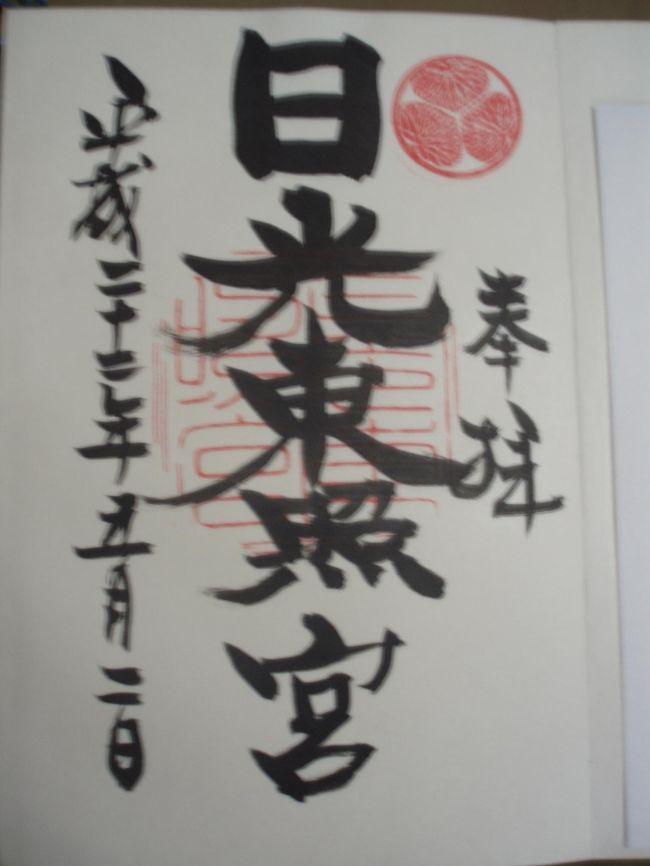 奉拝
日光東照宮
平成二十二年五月二日